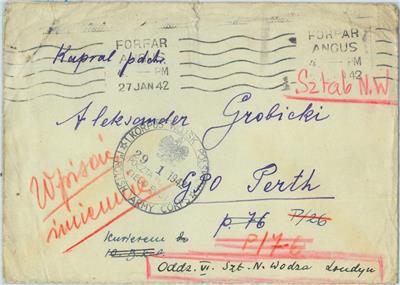 FORFAR
ANGUS
PM
27 JAN 42
FORFAR
ANGUS
PM
JAN 42
Kapral pdch.
Sztab N.W
Aleksander Grobicki
I KORPUS
29 1 1942
POCZTA
ARMY CORPS
Wpisać
imiennie
GPO Perth
p. 76 P/26
P/76
Kurierem do
Oddz. VI. Szt. N. Wodza Londyn